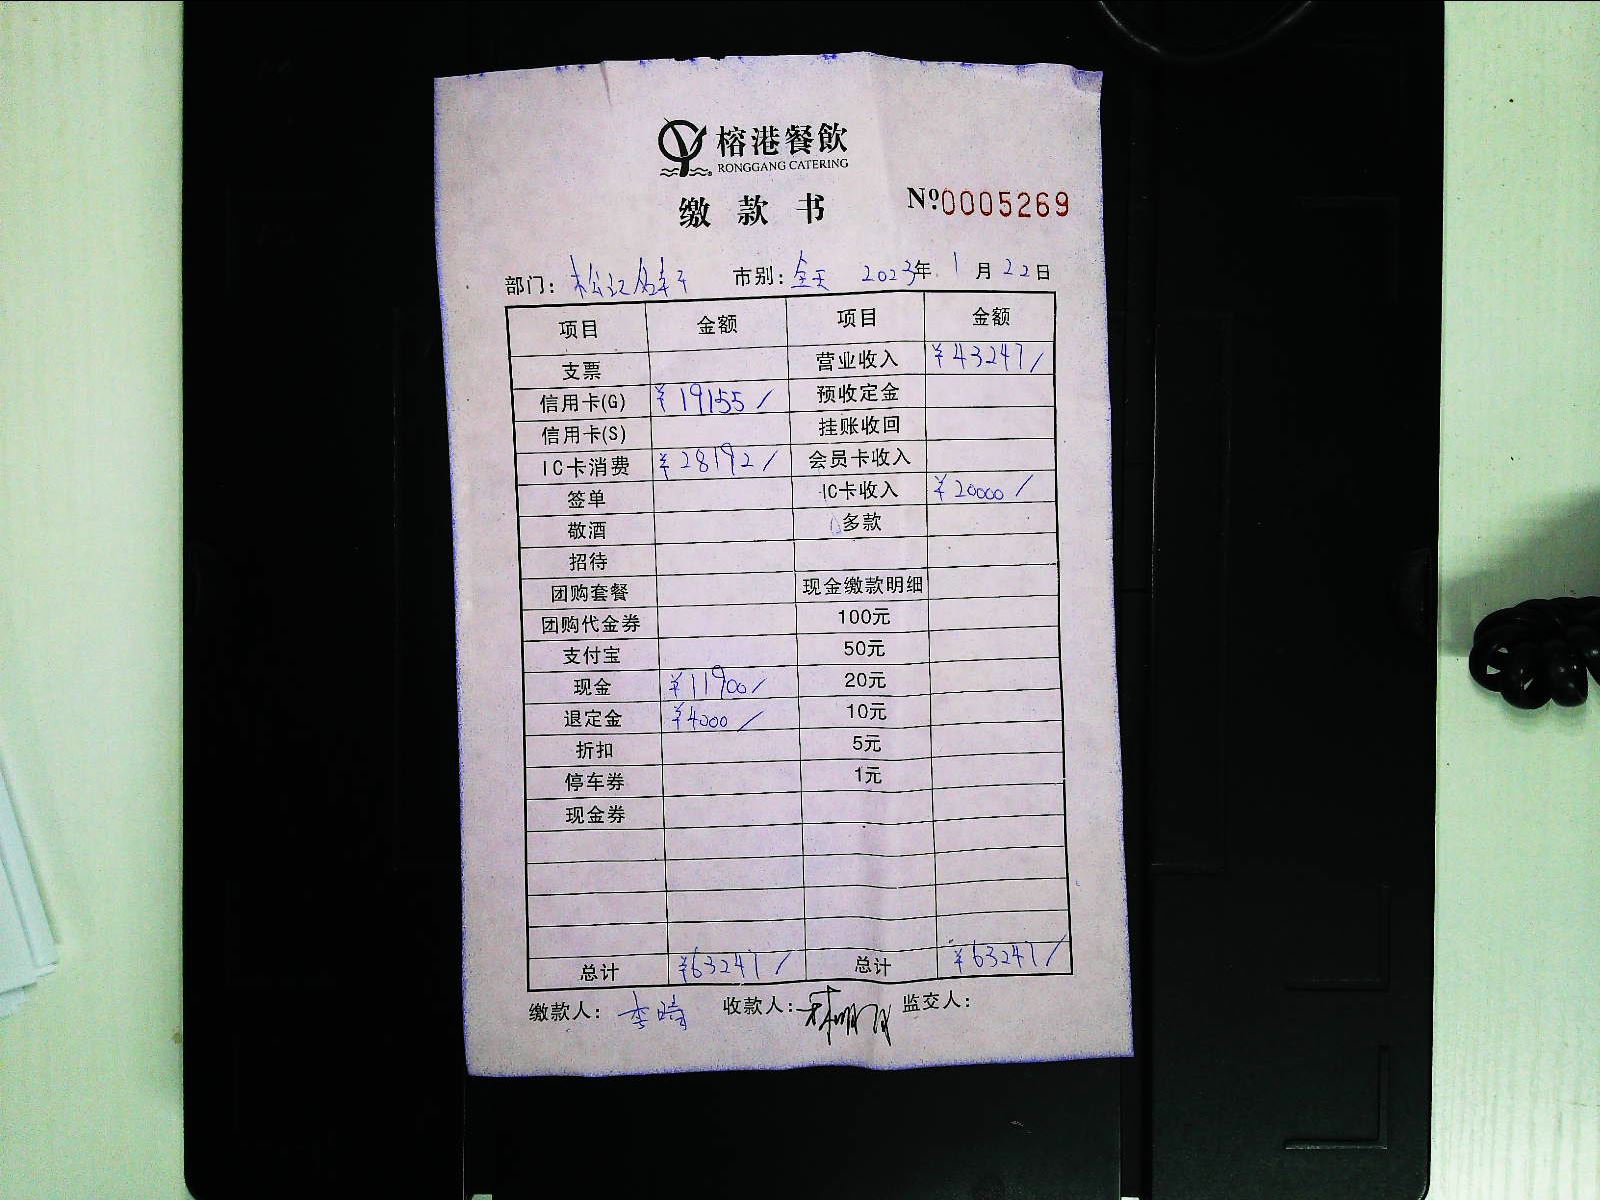 榕港餐飲
RONGGANG CATERING
缴款书 №0005269
部门: 松记 市别: 全天 2023年1月22日
项目 金额 项目 金额
支票 营业收入 ¥43247/
信用卡(G) ¥19155/ 预收定金
信用卡(S) 挂账收回
IC卡消费 ¥28192/ 会员卡收入
签单 IC卡收入 ¥20000/
敬酒 多款
招待
团购套餐 现金缴款明细
团购代金券 100元
支付宝 50元
现金 ¥11900/ 20元
退定金 ¥4000/ 10元
折扣 5元
停车券 1元
现金券
总计 ¥63247/ 总计 ¥63247/
缴款人: 李 收款人: 监交人: